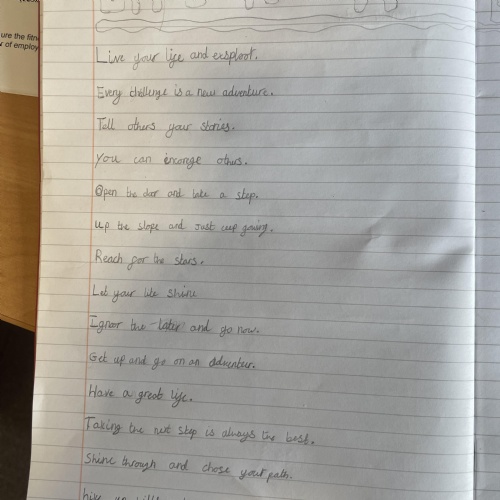 ure the fitn
of employ
Live your lije and exsploot.
Every challenge is a new adventure.
Tell others your stories.
you can encorge others.
Open the door and take a step.
up the slope and just ceep gowing.
Reach for the stars.
Let your lite shine
Ignor the later and go now.
Get up and go on an adventur.
Have a great life.
Taking the next step is always the best.
Shine through and chose your path.